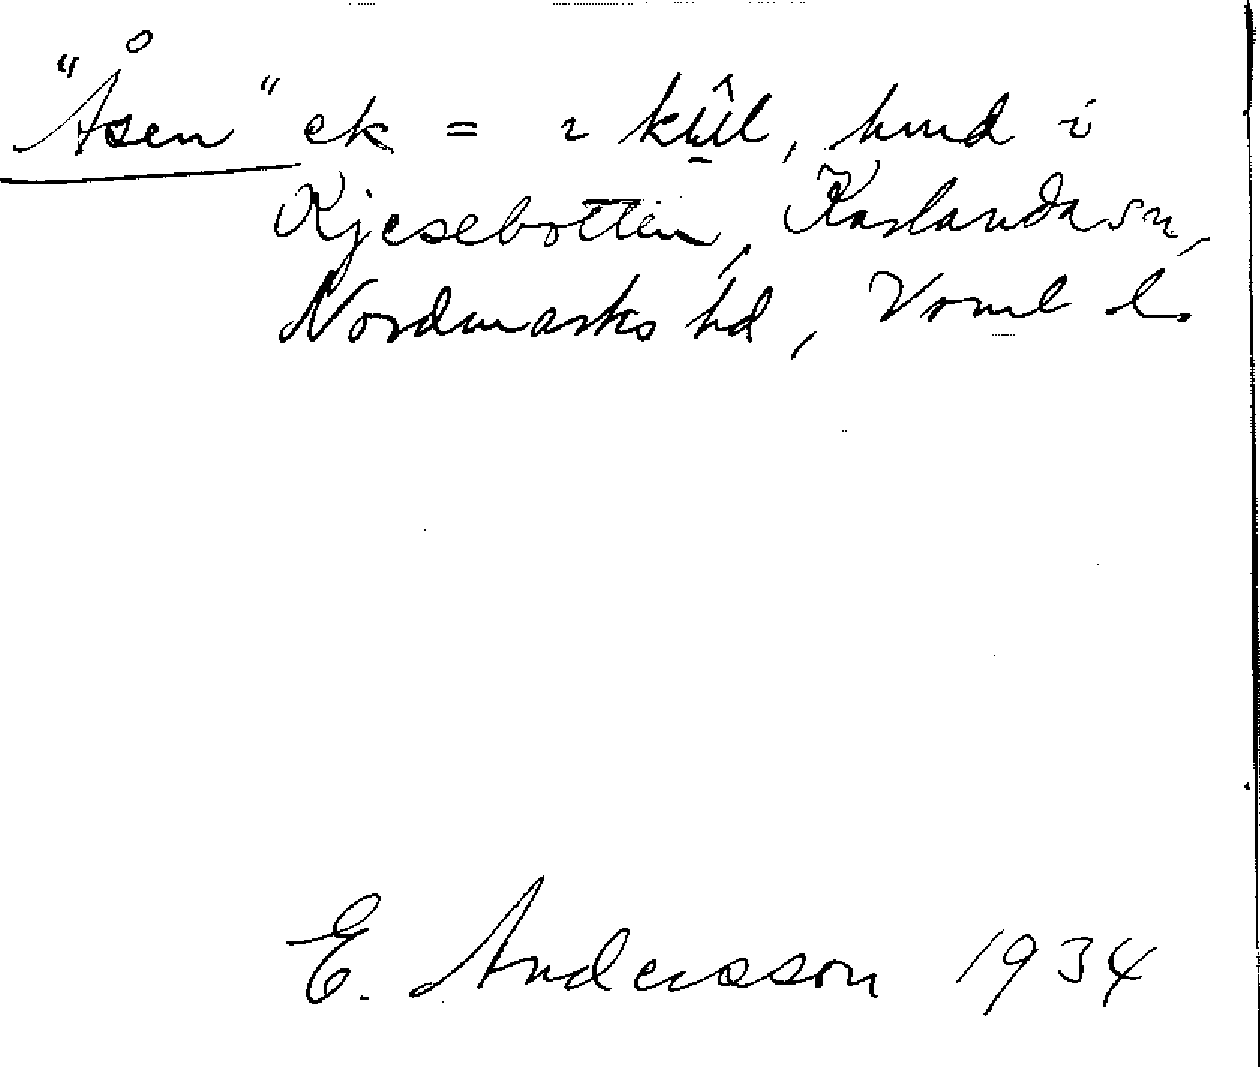 "Åsen" ek = ɿ kûl, hmd i
Kjesebotten, Karlanda sn,
Nordmarks hd, Vrml l.
E. Andersson 1934